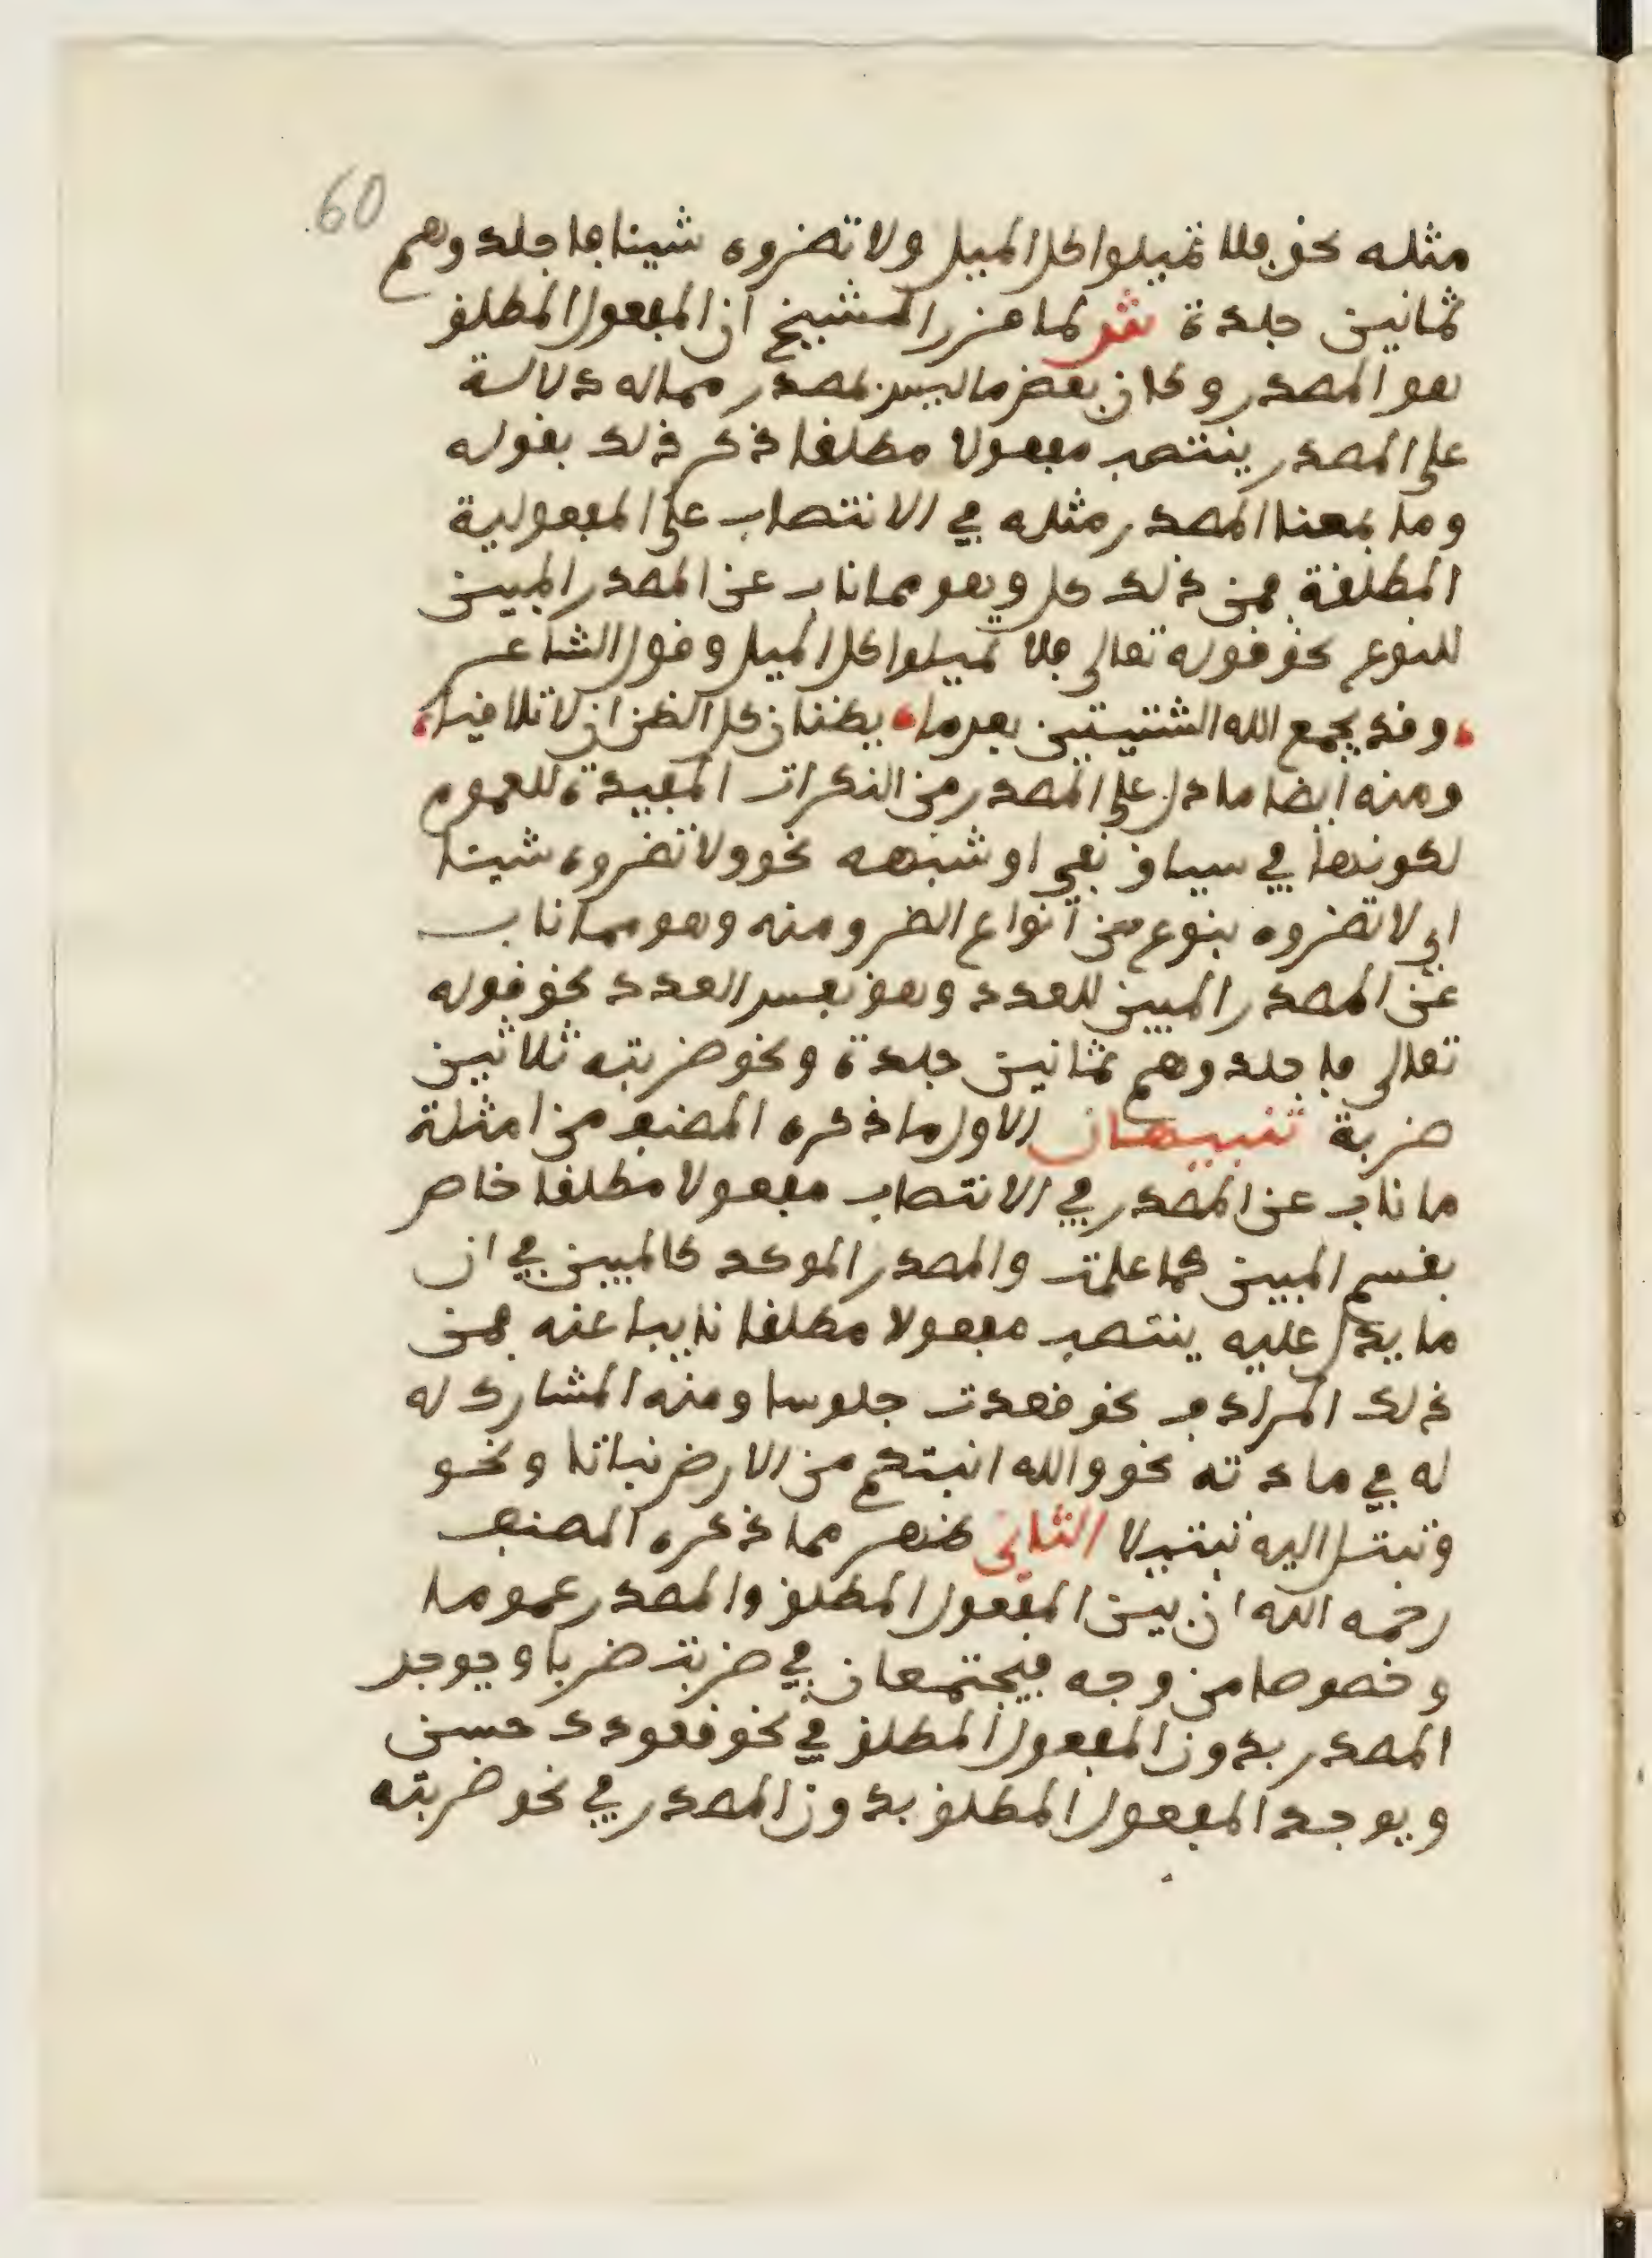 60
مثله نحو فلا تميلوا كل الميل ولا تضروه شيئا فاجلدوهم
ثمانين جلدة ش لما قرر الشيخ ان المفعول المطلق
هو المصدر وكان بعض ما ليس بمصدر مما له دلالة
على المصدر ينتصب مفعولا مطلقا ذكر ذلك بقوله
وما بمعنا المصدر مثله في الانتصاب على المفعولية
المطلقة فمن ذلك كل وهو مما ناب عن المصدر المبين
للنوع نحو قوله تعالى فلا تميلوا كل الميل وقول الشاعر
وقد يجمع الله الشتيتين بعدما يظنان كل الظن ان لا تلاقيا
ومنه ايضا ما دل على المصدر من النكرات المفيدة للعموم
لكونها في سياق نفي او شبهه نحو ولا تضروه شيئا
اي لا تضروه بنوع من أنواع الضر ومنه وهو مما ناب
عن المصدر المبين للعدد وهو نفس العدد نحو قوله
تعالى فاجلدوهم ثمانين جلدة ونحو ضربته ثلاثين
ضربة تنبيهان الاول ما ذكره المصنف من امثلة
ما ناب عن المصدر في الانتصاب مفعولا مطلقا خاص
بقسم المبين كما علمت والمصدر الموكد كالمبين في ان
ما يدل عليه ينتصب مفعولا مطلقا نايبا عنه فمن
ذلك المرادف نحو قعدت جلوسا ومنه المشارك له
له في مادته نحو والله انبتكم من الارض نباتا ونحو
وتبتل اليه تبتيلا الثاني ظهر مما ذكره المصنف
رحمه الله ان بين المفعول المطلق والمصدر عموما
وخصوصا من وجه فيجتمعان في ضربت ضربا ويوجد
المصدر بدون المفعول المطلق في نحو قعودك حسن
ويوجد المفعول المطلق بدون المصدر في نحو ضربته